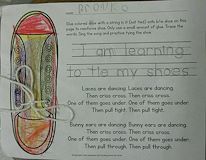 Glue colored shoe with a string in it (not tied) onto b/w shoe on this
page to reinforce shoe. Only use a small amount of glue. Trace the
words. Sing the song and practice tying the shoe.
I am learning
to tie my shoes
Laces are dancing. Laces are dancing.
Then criss cross. Then criss cross.
One of them goes under. One of them goes under.
Then pull tight. Then pull tight.
Bunny ears are dancing. Bunny ears are dancing.
Then criss cross. Then criss cross.
One of them goes under. One of them goes under.
Then pull through. Then pull through.